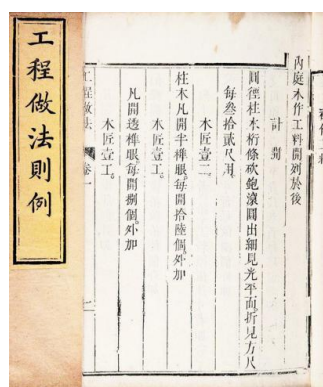 工程做法則例
內庭木作工料開列於後
計開
圓徑柱木桁條砍鉋滾圓出細見光平面折見方尺
每叁拾貳尺用
木匠壹工
柱木凡開半榫眼每開拾陸個外加
木匠壹工
凡開透榫眼每開捌個外加
木匠壹工
工程做法
卷一